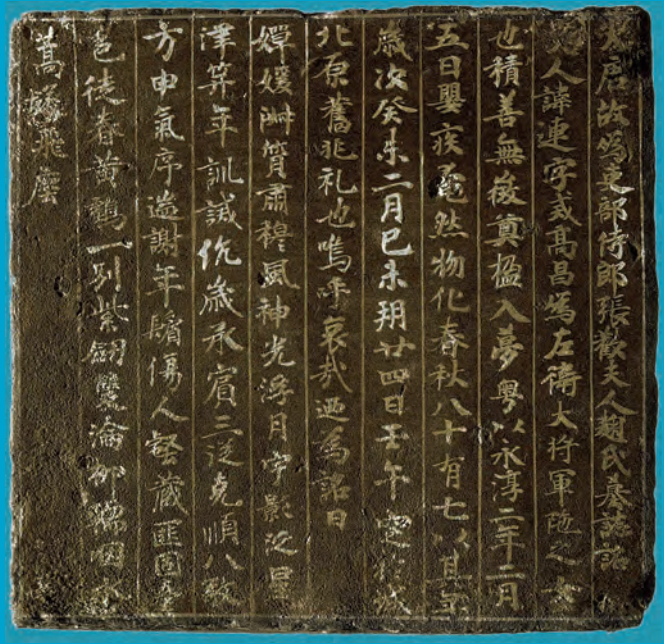 大唐故偽吏部侍郎張歡夫人麹氏墓誌銘
夫人諱連字戒高昌偽左衛大將軍陁之女
也積善無徵奠楹入夢粵以永淳二年二月
五日嬰疾奄然物化春秋八十有七以其年
歲次癸未二月己未朔廿四日壬午窆於城
北原舊兆礼也嗚呼哀哉迺為銘曰
嬋媛質肅穆風神光浮月宇影泛星
津笄年訓誡伉歲承賓三從克順八敬
方申氣序遄謝年傷人壑藏匪固
邑徒春黃鶴一別紫劒雙淪柳咽水
蒿飛塵